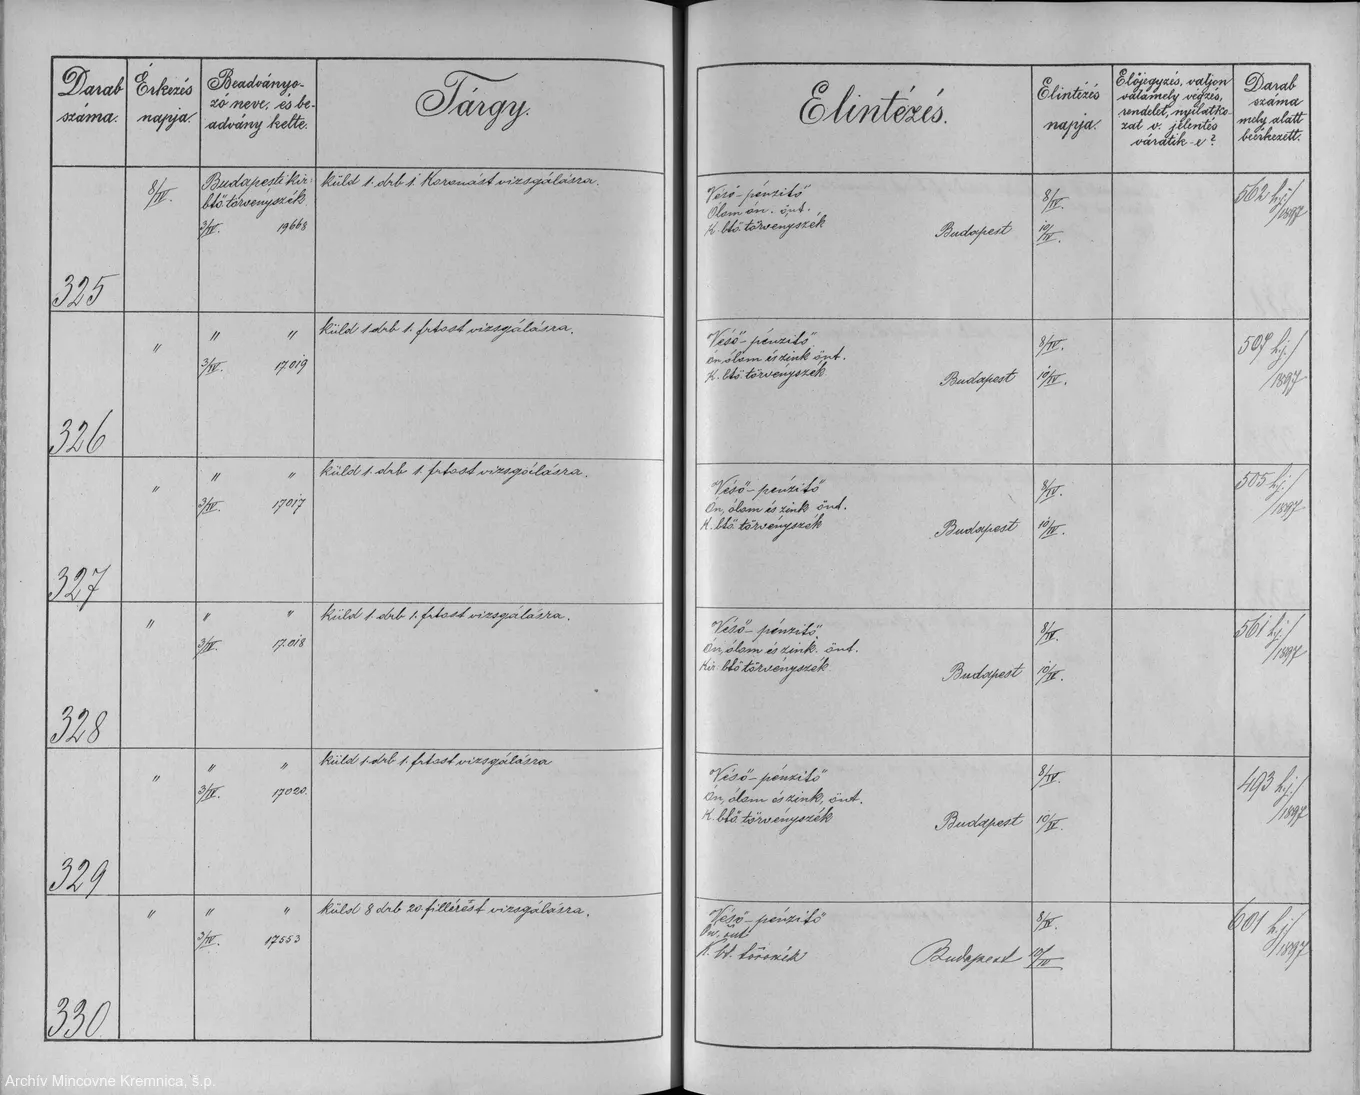 Darab száma.
Érkezés napja.
Beadványo-
zó neve, és be-
advány kelte.
Tárgy.
Elintézés.
Elintézés napja.
Előjegyzés, valjon
valamely végzés,
rendelet, nyilatko-
zat v. jelentés
váratik-e?
Darab
száma
mely alatt
beérkezett.
325
8/IV.
Budapesti kir.
btő törvényszék
3/IV. 19668
küld 1 drb 1 Koronást vizsgálásra.
Véső-pénzítő
Ólom ón. önt.
K. btő törvényszék Budapest
8/IV.
10/IV.
562 h.j./1897
326
" " "
3/IV. 17019
küld 1 drb 1. frtost vizsgálásra.
Véső-pénzítő
ón, ólom és zink önt.
K. btő törvényszék Budapest
8/IV.
10/IV.
507 h.j./1897
327
" " "
3/IV. 17017
küld 1 drb 1. frtost vizsgálásra.
Véső-pénzítő
Ón, ólom és zink önt.
K. btő törvényszék Budapest
8/IV.
10/IV.
505 h.j./1897
328
" " "
3/IV. 17.018
küld 1 drb 1. frtost vizsgálásra.
Véső-pénzítő
Ón, ólom és zink. önt.
Kir. btő törvényszék Budapest
8/IV.
10/IV.
561 h.j./1897
329
" " "
3/IV. 17020.
küld 1 drb 1. frtost vizsgálásra
Véső-pénzítő
Ón, ólom és zink, önt.
K. btő törvényszék Budapest
8/IV.
10/IV.
493 h.j./1897
330
" " "
3/IV. 17553
küld 8 drb 20 fillérést vizsgálásra.
Véső-pénzítő
Ón, önt.
K. bt. törvszék Budapest
8/IV.
10/IV
601 h.j./1897
Archív Mincovne Kremnica, š.p.